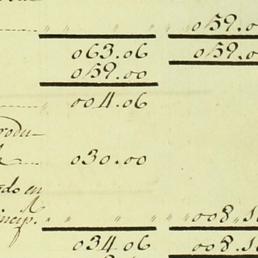 059.0
063.06 059.0
059.00
004.06
rodu-
030.00
do en
ncip. " " " 008.5
034.06 008.5